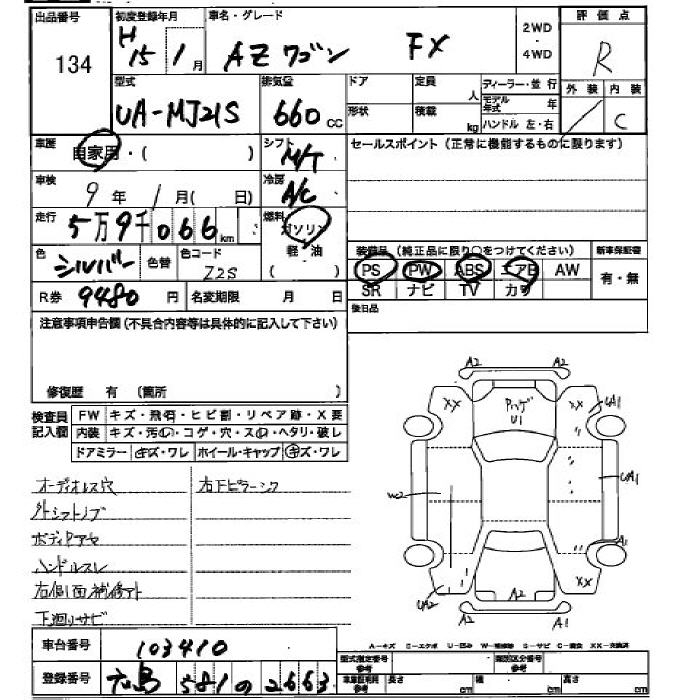 出品番号
134
初度登録年月
H15 1月
車名・グレード
AZワゴン FX
2WD
・
4WD
評価点
R
型式
UA-MJ21S
排気量
660 CC
ドア
形状
定員 人
積載 kg
ディーラー・並行
モデル年式 年
ハンドル 左・右
外装 内装
／ C
車歴
自家用・( )
シフト
M/T
セールスポイント (正常に機能するものに限ります)
車検
9年 1月( 日)
冷房
A/C
走行
5万9千066km
燃料
ガソリン
軽・油
( )
色
シルバー
色替
色コード
Z2S
装備品 (純正品に限り○をつけてください)
新車保証書
PS PW ABS エアB AW
有・無
SR ナビ TV カワ
R券 9480円
名変期限 月 日
後日品
注意事項申告欄 (不具合内容等は具体的に記入して下さい)
修復歴 有 (箇所 )
検査員記入欄
FW キズ・飛石・ヒビ割・リペア跡・X要
内装 キズ・汚れ・コゲ・穴・スレ・ヘタリ・破レ
ドアミラー キズ・ワレ ホイール・キャップ キズ・ワレ
オーディオレス穴
右下ピラーシワ
外シフトノブ
ボディロアセ
ハンドルスレ
右側面補修跡
下廻りサビ
A2 A2
XX XX
Pハゲ
U1
UA1
W2
UA1
A1
XX
UA2
A2
A2 A1
A-キズ E-エクボ U-凹み W-補修跡 S-サビ C-腐食 XX-交換済
車台番号
103410
登録番号
広島 581 の 2663
型式指定番号
参考
類別区分番号
参考
車庫証明用
参考
長さ cm
幅 cm
高さ cm